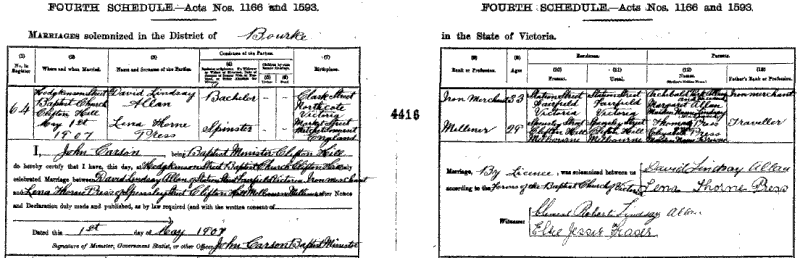 FOURTH SCHEDULE.—Acts Nos. 1166 and 1593.
MARRIAGES solemnized in the District of Bourke
(1) No. in Register
(2) When and where Married.
(3) Name and Surname of the Parties.
Condition of the Parties.
(4)
(5)
(6)
(7) Birthplace.
64
Hodgkinson Street
Baptist Church
Clifton Hill
May 1st
1907
David Lindsay
Allan
Lena Thorne
Press
Bachelor
Spinster
Clark Street
Northcote
Victoria
Street
Somerset
England
I, John Carson, being Baptist Minister Clifton Hill
do hereby certify that I have, this day, at Hodgkinson Street Baptist Church Clifton Hill duly
celebrated Marriage between David Lindsay Allan, Station Street Fairfield Victoria, Iron merchant
and Lena Thorne Press of Street Clifton Hill Melbourne Milliner after Notice
and Declaration duly made and published, as by law required (and with the written consent of
Dated this 1st day of May 1907
Signature of Minister, Government Statist, or other Officer, John Carson Baptist Minister
4416
FOURTH SCHEDULE.—Acts Nos. 1166 and 1593.
in the State of Victoria.
(8) Rank or Profession.
(9) Ages
Residence.
(10) Present.
(11) Usual.
Parents.
(12) Names.
(13) Father's Rank or Profession.
Iron Merchant
33
Station Street
Fairfield
Victoria
Station Street
Fairfield
Victoria
Allan
Margaret Allan
Iron merchant
Milliner
29
Street
Clifton Hill
Melbourne
Street
Clifton Hill
Melbourne
Thomas Press
Elizabeth Press
Traveller
Marriage, By Licence, was solemnized between us
according to the Forms of the Baptist Church Victoria
David Lindsay Allan
Lena Thorne Press
Witnesses
Clement Robert Lindsay Allan
Elsie Jessie Fraser